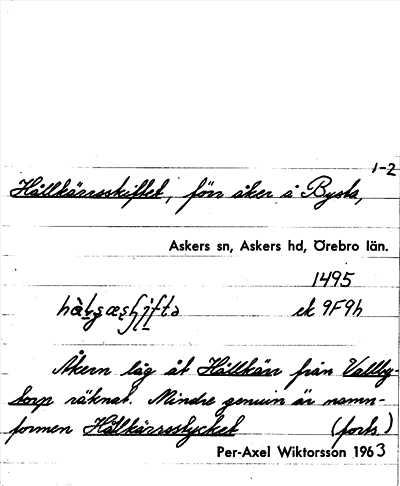 1-2
Hållkärrsskiftet, förr åker å Bysta,
Askers sn, Askers hd, Örebro län.
1495
ek 9F9h
Åkern låg åt Hållkärr från Vallby-
torp räknat. Mindre genuin är namn-
formen Hållkärrsstycket (forts.)
Per-Axel Wiktorsson 1963